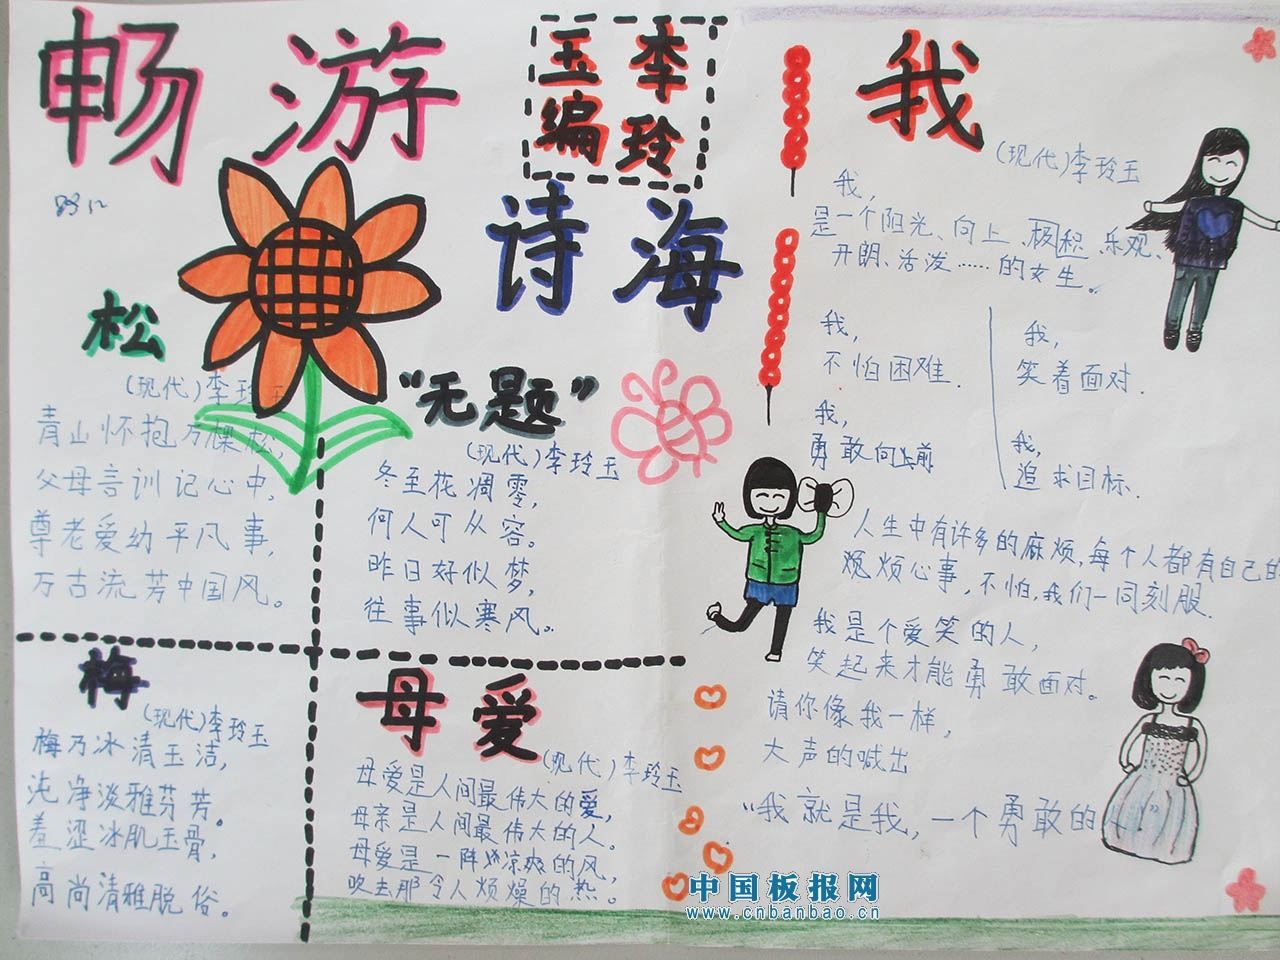 畅游
李玲
玉编
诗海
松
(现代)李玲玉
青山怀抱万棵松，
父母言训记心中。
尊老爱幼平凡事，
万古流芳中国风。
“无题”
(现代)李玲玉
冬至花凋零，
何人可从容。
昨日好似梦，
往事似寒风。
梅
(现代)李玲玉
梅乃冰清玉洁，
净淡雅芬芳。
羞涩冰肌玉骨，
高尚清雅脱俗。
母爱
(现代)李玲玉
母爱是人间最伟大的爱，
母亲是人间最伟大的人。
母爱是一阵凉爽的风，
吹去那令人烦燥的热。
我
(现代)李玲玉
我，
是一个阳光、向上、极积、乐观、
开朗、活泼……的女生。
我，
不怕困难.
我，
勇敢向上前
我，
笑着面对.
我，
追求目标.
人生中有许多的麻烦，每个人都有自己的
烦心事，不怕，我们一同刻服.
我是个爱笑的人，
笑起来才能勇敢面对。
请你像我一样，
大声的喊出
“我就是我，一个勇敢的
中国板报网
www.cnbanbao.cn